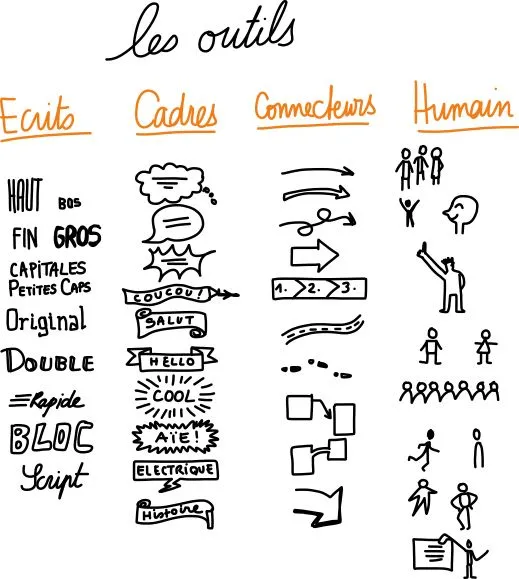 les outils
Ecrits
HAUT BOS
FIN GROS
CAPITALES
PETITES CAPS
Original
DOUBLE
Rapide
BLOC
Script
Cadres
COUCOU!
SALUT
HELLO
COOL
AÏE!
ELECTRIQUE
Histoire
Connecteurs
1. 2. 3.
Humain